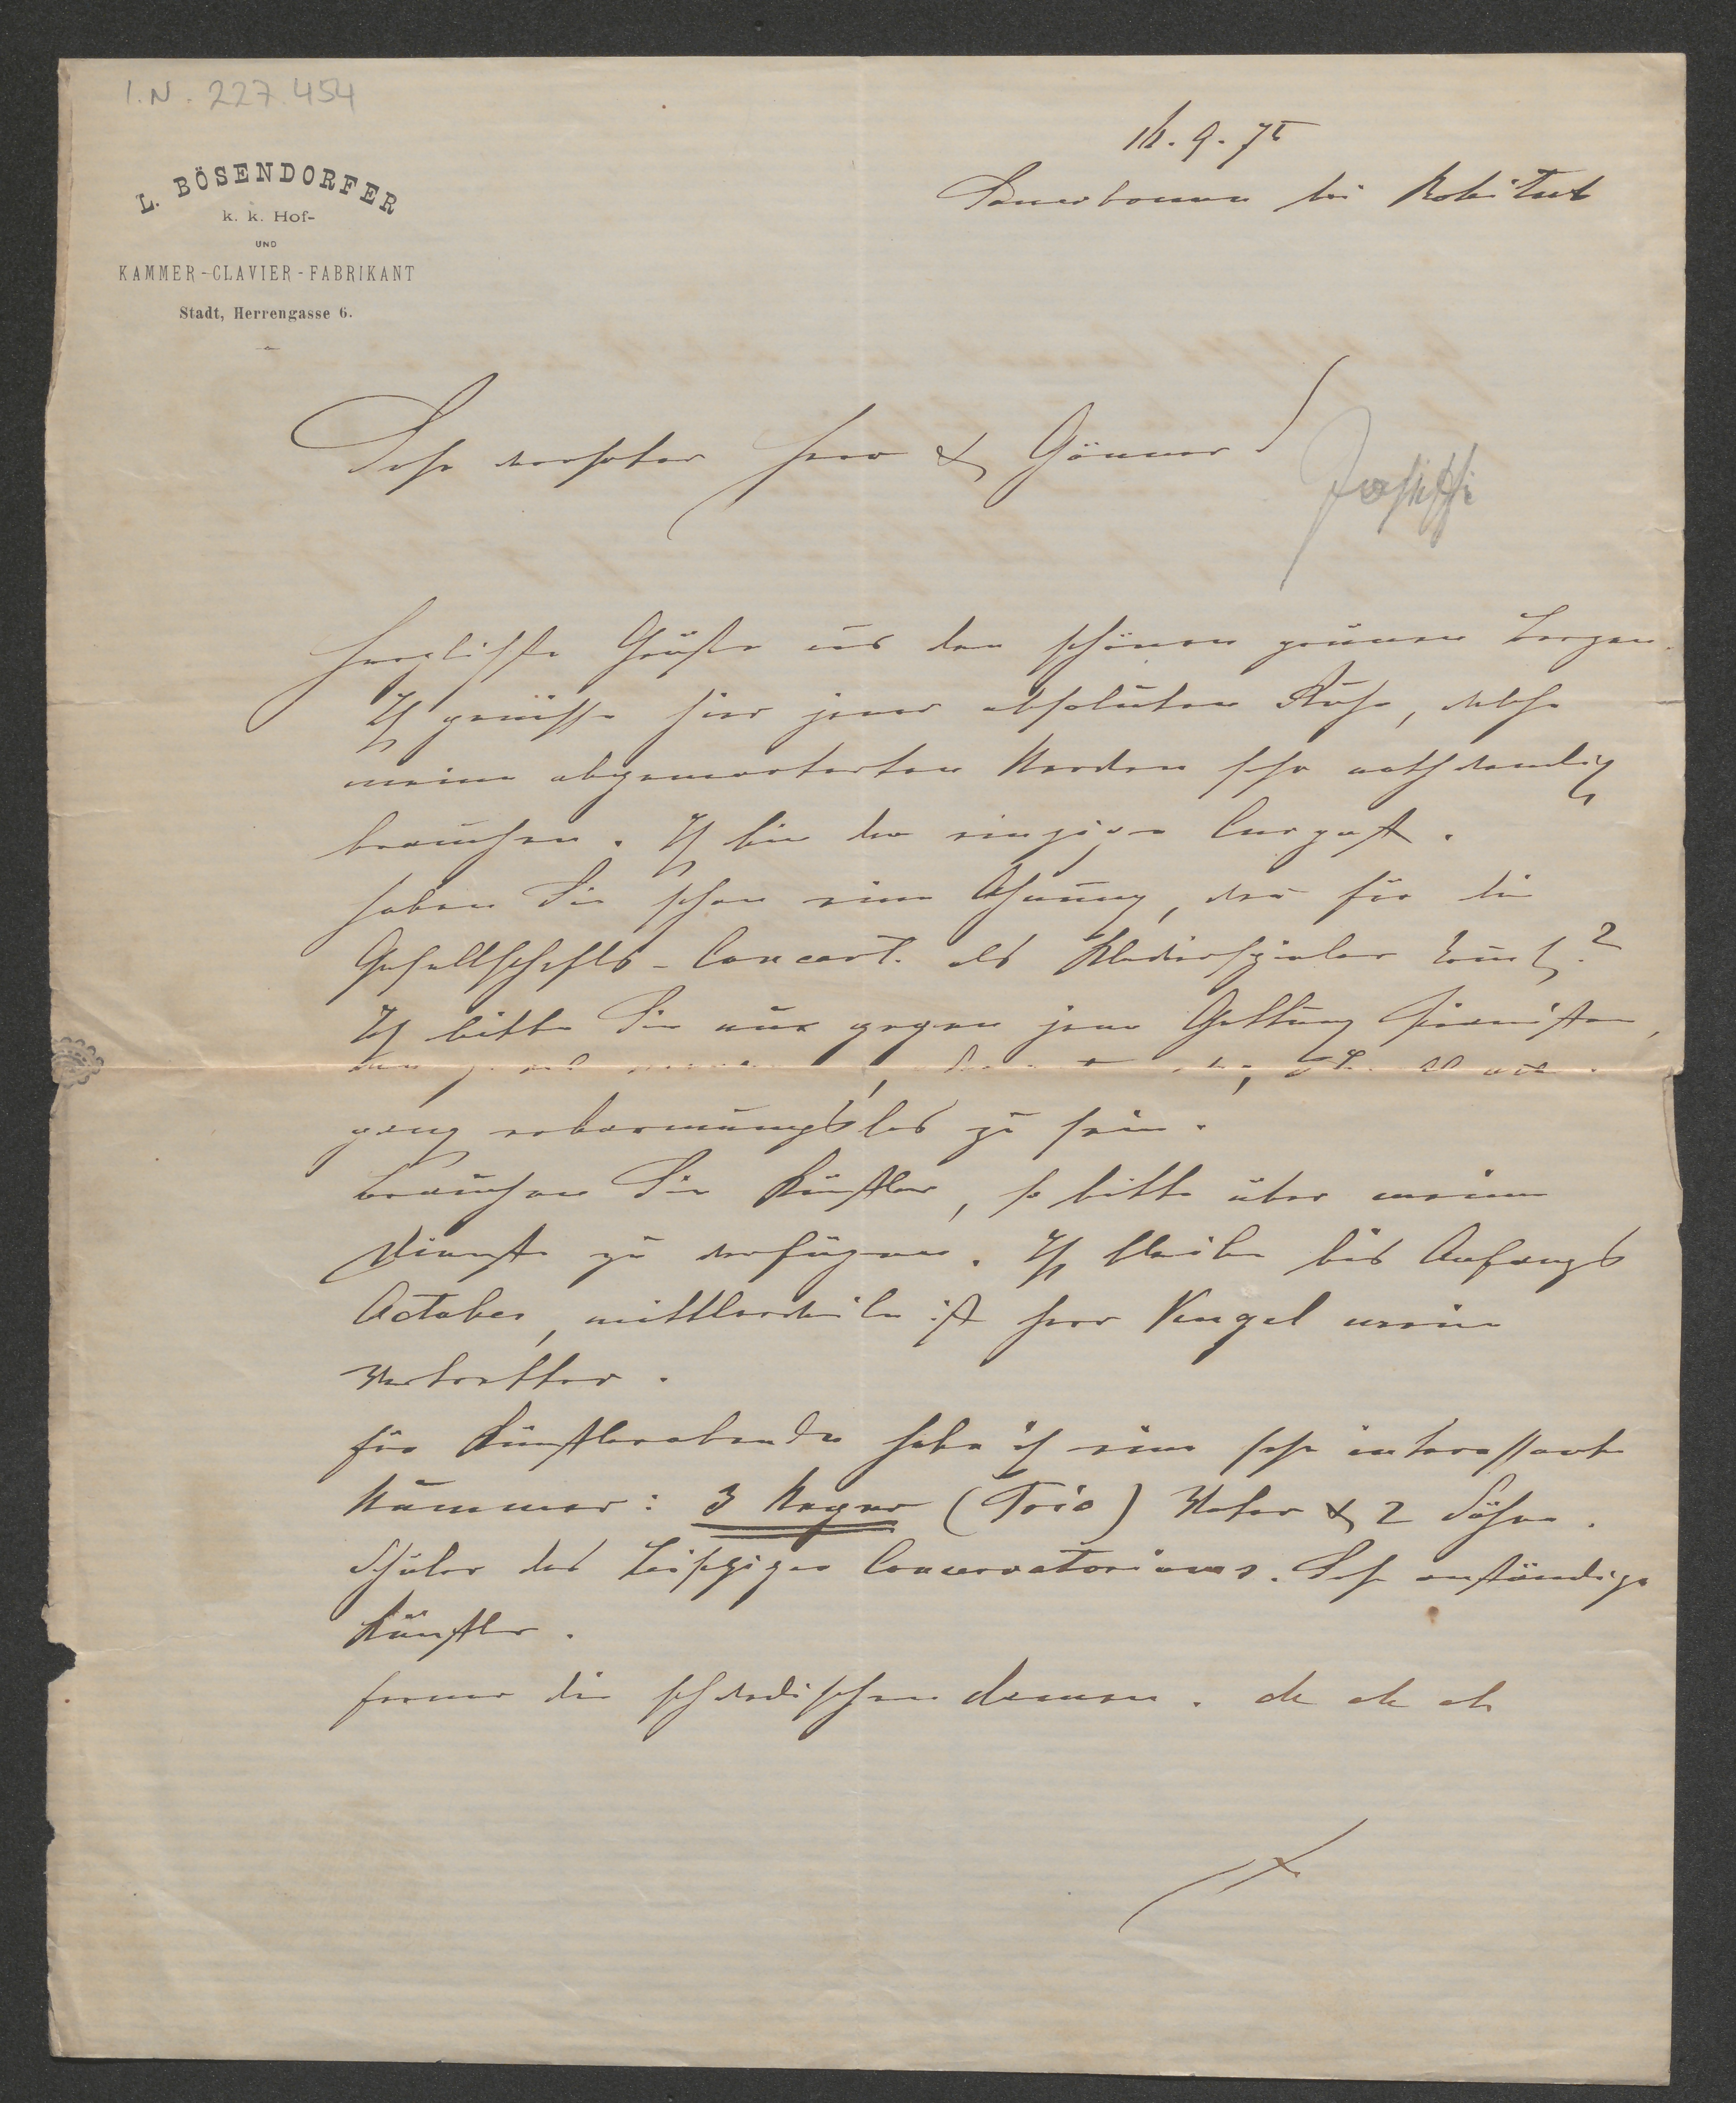 I.N. 227.454
L. BÖSENDORFER
k. k. Hof-
UND
KAMMER-CLAVIER-FABRIKANT
Stadt, Herrengasse 6.
9. 75
Sauerbrunn bei Rohitsch
Sehr verehrter Herr & Gönner
Josiffi
Herzlichste Grüße aus den schönen grünen Bergen.
Ich genieße hier jener absoluten Ruhe, welche
meine abgemarterten Nerven sehr nothwendig
brauchen. Ich bin der einzige Curgast.
Haben Sie schon eine Ahnung, wen für die
Gesellschafts-Concert. als Klavierspieler
Ich bitte Sie nur gegen jene Gattung Pianisten,
ganz erbarmungslos zu sein.
Brauchen Sie Künstler, so bitte über meine
Dienste zu verfügen. Ich bleibe bis Anfangs
October, mittlerweile ist Herr Kugel mein
Vertretter.
Für Künstlerabende habe ich eine sehr interessante
Nummer: 3 Neger (Trio) Vater & 2 Söhne.
Schüler des Leipziger Conservatoriums. Sehr anständige
Künstler.
Ferner die schwedischen Damen. etc etc etc